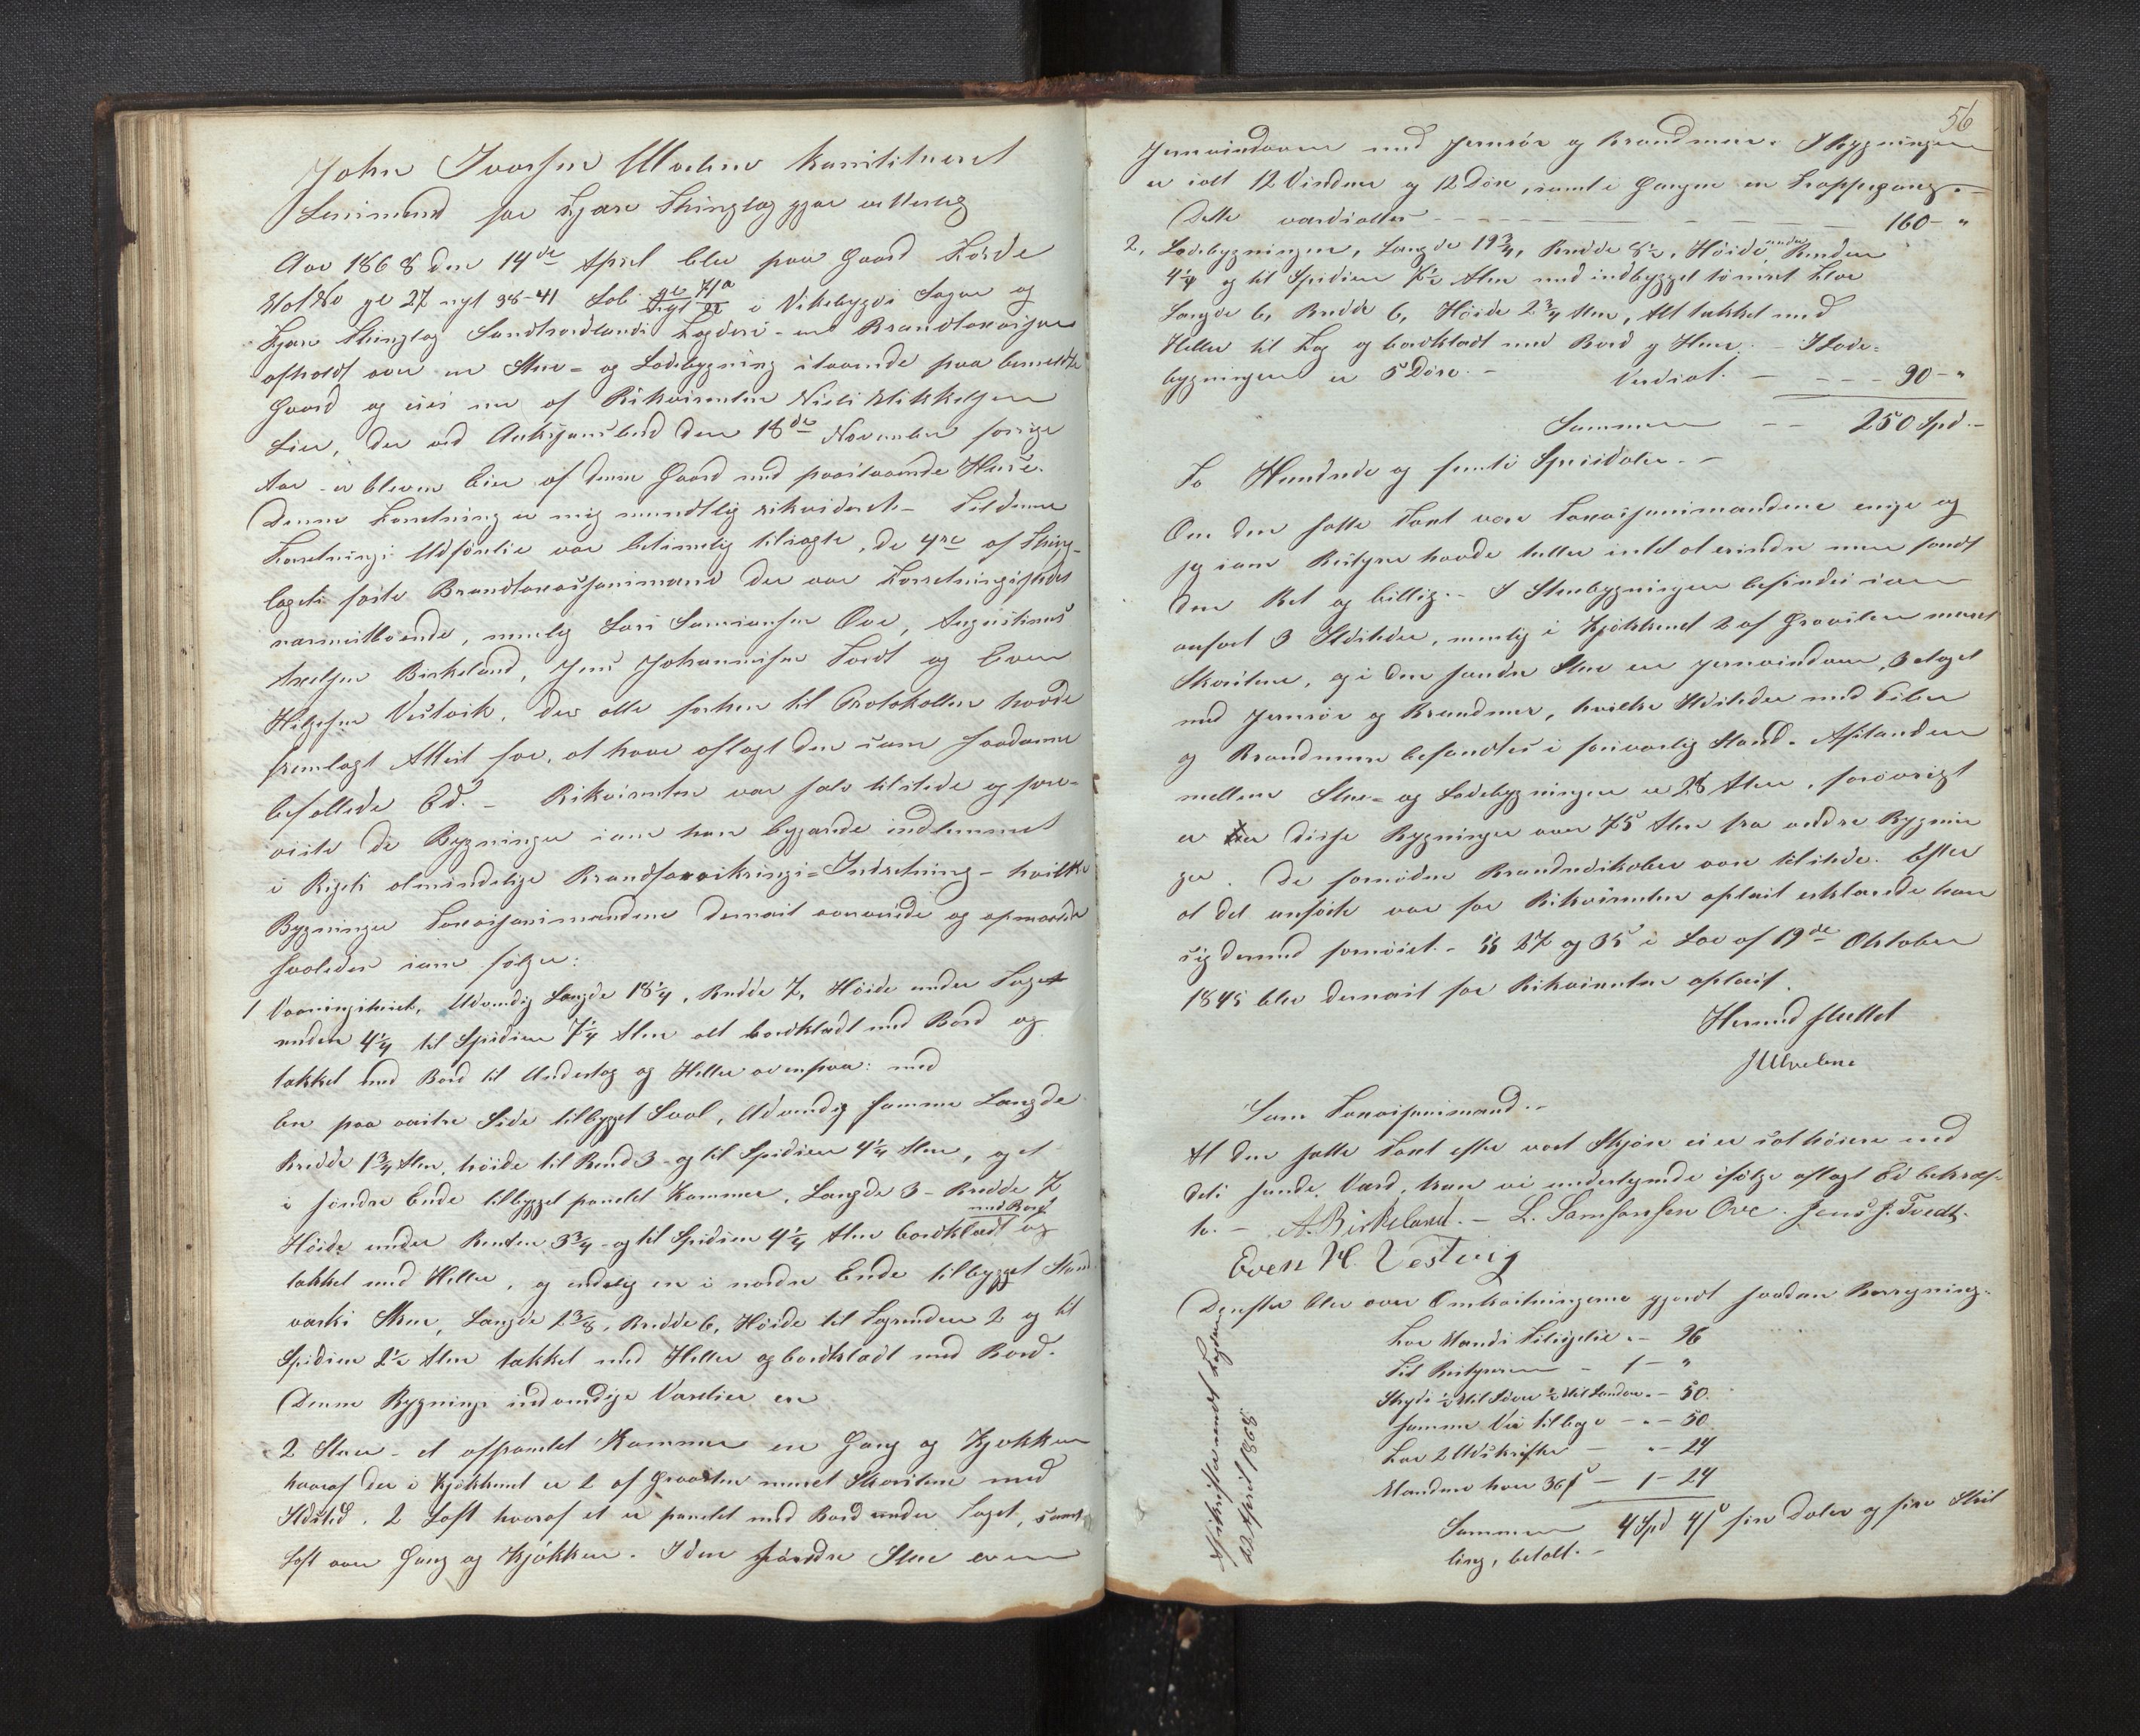 John Ivarsen Ulveline konstitueret
Lensmand for Fjære Thinglag gjør vitterlig
Aar 1868 den 14de April blev paa Gaard Førde
Mat No gl 27 nyt 38-41 Løb: gl 71a i Vikebygds Sogn og
Fjære Thinglag Søndhordlands Fogderi - en Brandtaxasjon
afholdt over en Stue- og Ladebygning staaende paa bemeldte
Gaard og eies nu af Rikvirenten Niels Mikkelsen
Lier, der ved Auksjonsbud den 18de November forrige
Aar er bleven Eier af denne Gaard med paastaaende Huse.
Denne Forretning er mig mundtlig rikvideret - Til denne
Forretnings Udførelse var betimelig tilsagte, de 4re af Thing-
lagets faste Brandtaxasjonsmænd der var Forretningsstedet
nærmestboende, nemlig Lars Samsonsen Ove, Augustinus
Axelsen Birkeland, Jens Johannessen Tvedt og Even
Helgesen Vestvik, der alle forhen til Protokollen havde
fremlagt Attest for, at have aflagt den som saadanne
befallede Ed. - Rikvirenten var selv tilstede og fore-
viste de Bygninger som han begjærede indlemmet
i Rigets almindelige Brandforsikrings-Indretning - hvilke
Bygninger Taxasjonsmændene dernæst overveiede og opmaalte
saaledes som følger:
1 Vaaningshuset, Udvendig Længde 18¼, Bredde 7, Høide under Taget
enden 4¼ til Spidsen 7¼ Alen alt bordklædt med Bord og
takket med Bord til Undertag og Heller ovenpaa: med
en paa vestre Side tilbygget Sval, Udvendig samme Længde
Bredde 1¾ Alen, høide til Rend 3 og til Spidsen 4¼ Alen, og et
i søndre Ende tilbygget panelet Kammer, Længde 3 - Bredde 7
Høide under Renden 3¾ og til Spidsen 4¼ Alen bordklædt med Bord og
takket med Heller, og endelig en i nordre Ende tilbygget Stand
værks Skur, Længde 2⅜, Bredde 6, Høide til Tagrenden 2 og til
Spidsen 2½ Alen takket med Heller og bordklædt med Bord.
Denne Bygnings indvendige Værelser er
2 Stuer - et afpanelet Kammer en Gang og Kjøkken
hvoraf der i Kjøkkenet er 2 af Graasten muret Skorstene med
Ildsted. 2 Loft hvoraf et er panelet med Bord under Taget, samt
Loft over Gang og Kjøkken. I den søndre Stue er en
56
Jernvindovn med Jernrør og Brandmur. I Bygningen
er ialt 12 Vinduer og 12 Døre, samt i Gangen en Trappegang.
Dette værdsattes - - - 160 - "
2, Ladebygningen, Længde 19¾, Bredde 8½, Høide under Renden
4¼ og til Spidsen 7½ Alen med indbygget tømret Løe
Længde 6, Bredde 6, Høide 2¾ Alen, Alt takket med
Heller til Tag og bordklædt med Bord og Huer. - I Lade-
bygningen er 5 Døre. - Verdsat. - - - - 90 - "
Summen - - 250 Spd. -
To Hundrede og femti Spesidaler. -
Om den satte Taxt vare Taxasjonsmændene enige og
jeg som Bestyrer havde heller intet at erindre men fandt
den Ret og billig. - I Stuebygningen befindes som
anført 3 Ildsteder, nemlig i Kjøkkenet 2 af Graasten muret
Skorstene, og i den søndre Stue en Jernvindovn, 3 etaget
med Jernrør og Brandmur, hvilke Ildsteder med Piber
og Brandmure befandtes i forsvarlig Stand. Afstanden
mellem Stue- og Ladebygningen er 28 Alen, forøvrigt
er disse Bygninger over 75 Alen fra andre Bygnin
ger. De fornødne Brandredskaber vare tilstede. Efter
at det anførte var for Rikvirenten oplæst erklærede han
sig dermed fornøiet. - §§ 27 og 35 i Lov af 19de Oktober
1845 blev dernæst for Rikvirenten oplæst.
Hermed sluttet
JUlveline
Som Taxasjonsmænd. -
At den satte Taxt efter vort Skjøn ei er sat høiere end
dets sande Værd, kan vi undertegnede ifølge aflagt Ed bekræf-
te. - A. Birkeland. - L. Samsonsen Ove. Jens J. Tvedt.
Even H. Vestvig
Derefter blev over Omkostningerne gjordt saadan Beregning.
For Mænds Tilsigelse - " - 96
Til Bestyreren - 1 - "
Skyds ½ Mil Søen ½ Mil Landev. - 50
samme Vei tilbage - " - 50
For 2 Udskrifter - " - 24
Mændene hver 36 ß - 1 - 24
Summen 4 Spd 4 ß fire Daler og fire Skil
ling, betalt. -
Afskrifter sendt Fogden
22 April 1868